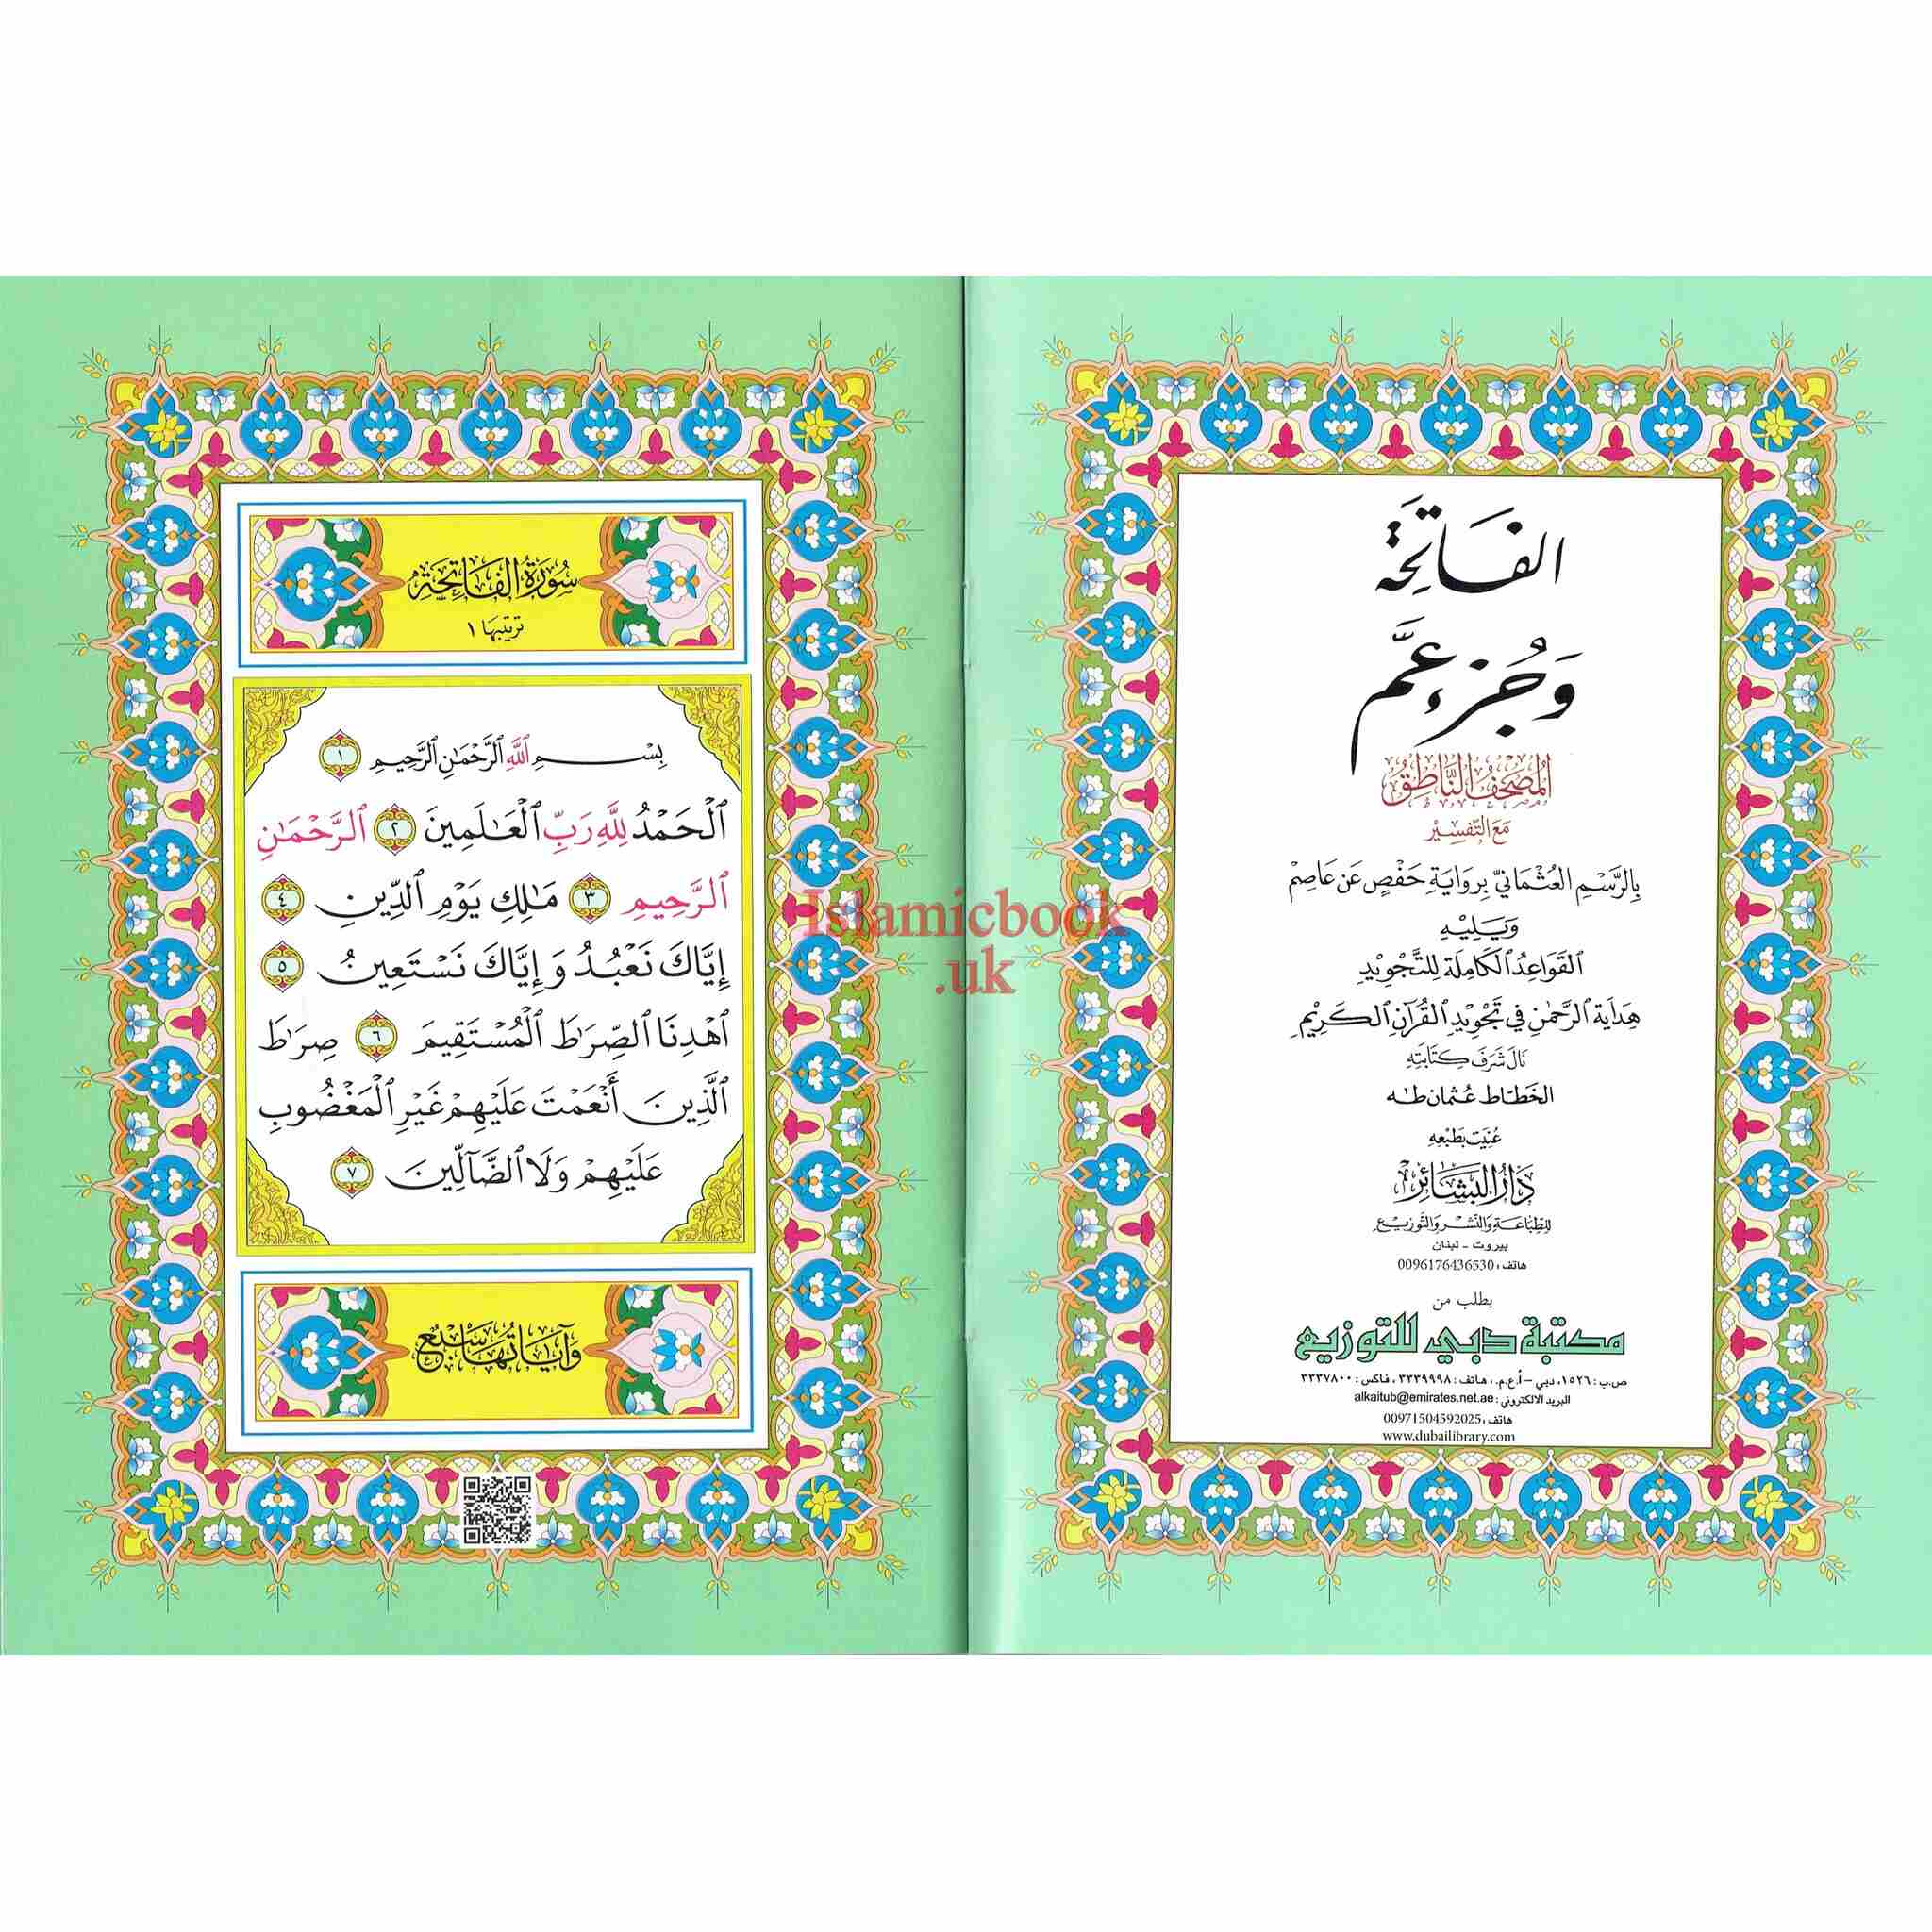 الفَاتِحَة
وَجُزء عَمَّ
المُصْحَفُ النَّاطِقُ
مَعَ التَّفسِيْر
بِالرَّسْمِ العُثْمَانيِّ بِروَايَةِ حَفْصٍ عَن عَاصِمْ
وَيَليْهِ
القَوَاعِدُ الكَامِلَة لِلتَّجْوِيْدِ
هِدَايَة الرَّحمٰنِ في تَجْوِيْدِ القُرآنِ الكَرِيْمِ
نَالَ شَرَفَ كِتَابَتِهِ
الخَطَّاط عُثمَان طٰه
عُنِيَت بطَبْعِهِ
دَارُ البَشَائِر
لِلطِّبَاعَةِ وَالنَشْرِ وَالتَّوْزِيْعِ
بيروت - لبنان
هاتف: 0096176436530
يطلب من
مكتبة دبي للتوزيع
ص.ب: ١٥٢٦، دبي - أ.ع.م.، هاتف: ٣٣٣٩٩٩٨، فاكس: ٣٣٣٧٨٠٠
البريد الالكتروني: alkaitub@emirates.net.ae
هاتف: 00971504592025
www.dubailibrary.com
سُورَةُ الفَاتِحَةِ
ترتيبها ١
بِسْمِ ٱللَّهِ ٱلرَّحْمَٰنِ ٱلرَّحِيمِ ١
ٱلْحَمْدُ لِلَّهِ رَبِّ ٱلْعَٰلَمِينَ ٢ ٱلرَّحْمَٰنِ
ٱلرَّحِيمِ ٣ مَٰلِكِ يَوْمِ ٱلدِّينِ ٤
إِيَّاكَ نَعْبُدُ وَإِيَّاكَ نَسْتَعِينُ ٥
ٱهْدِنَا ٱلصِّرَٰطَ ٱلْمُسْتَقِيمَ ٦ صِرَٰطَ
ٱلَّذِينَ أَنْعَمْتَ عَلَيْهِمْ غَيْرِ ٱلْمَغْضُوبِ
عَلَيْهِمْ وَلَا ٱلضَّآلِّينَ ٧
وَآيَاتُهَا سَبْعٌ
Islamicbook
.uk